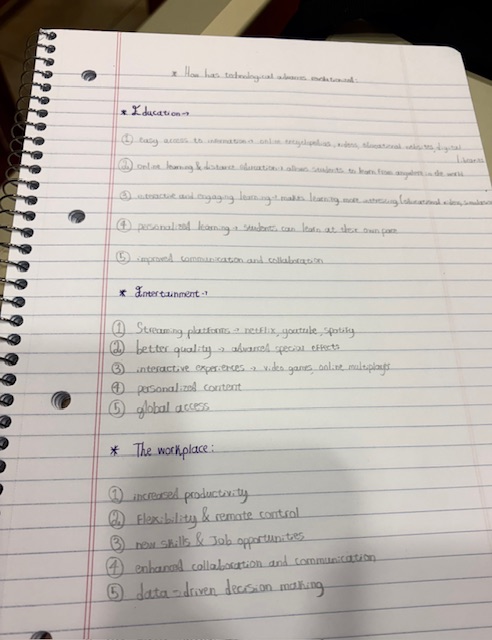 * How has technological advances revolutionized:
* Education →
① Easy access to information → online encyclopedias, videos, educational websites, digital
libraries
② online learning & distance education → allows students to learn from anywhere in the world
③ interactive and engaging learning → makes learning more interesting (educational videos, simulations
④ personalized learning → students can learn at their own pace
⑤ improved communication and collaboration
* Entertainment →
① Streaming platforms → netflix, youtube, spotify
② better quality → advanced special effects
③ interactive experiences → video games, online multiplayer
④ personalized content
⑤ global access
* The workplace:
① increased productivity
② Flexibility & remote control
③ new skills & Job opportunities
④ enhanced collaboration and communication
⑤ data-driven decision making